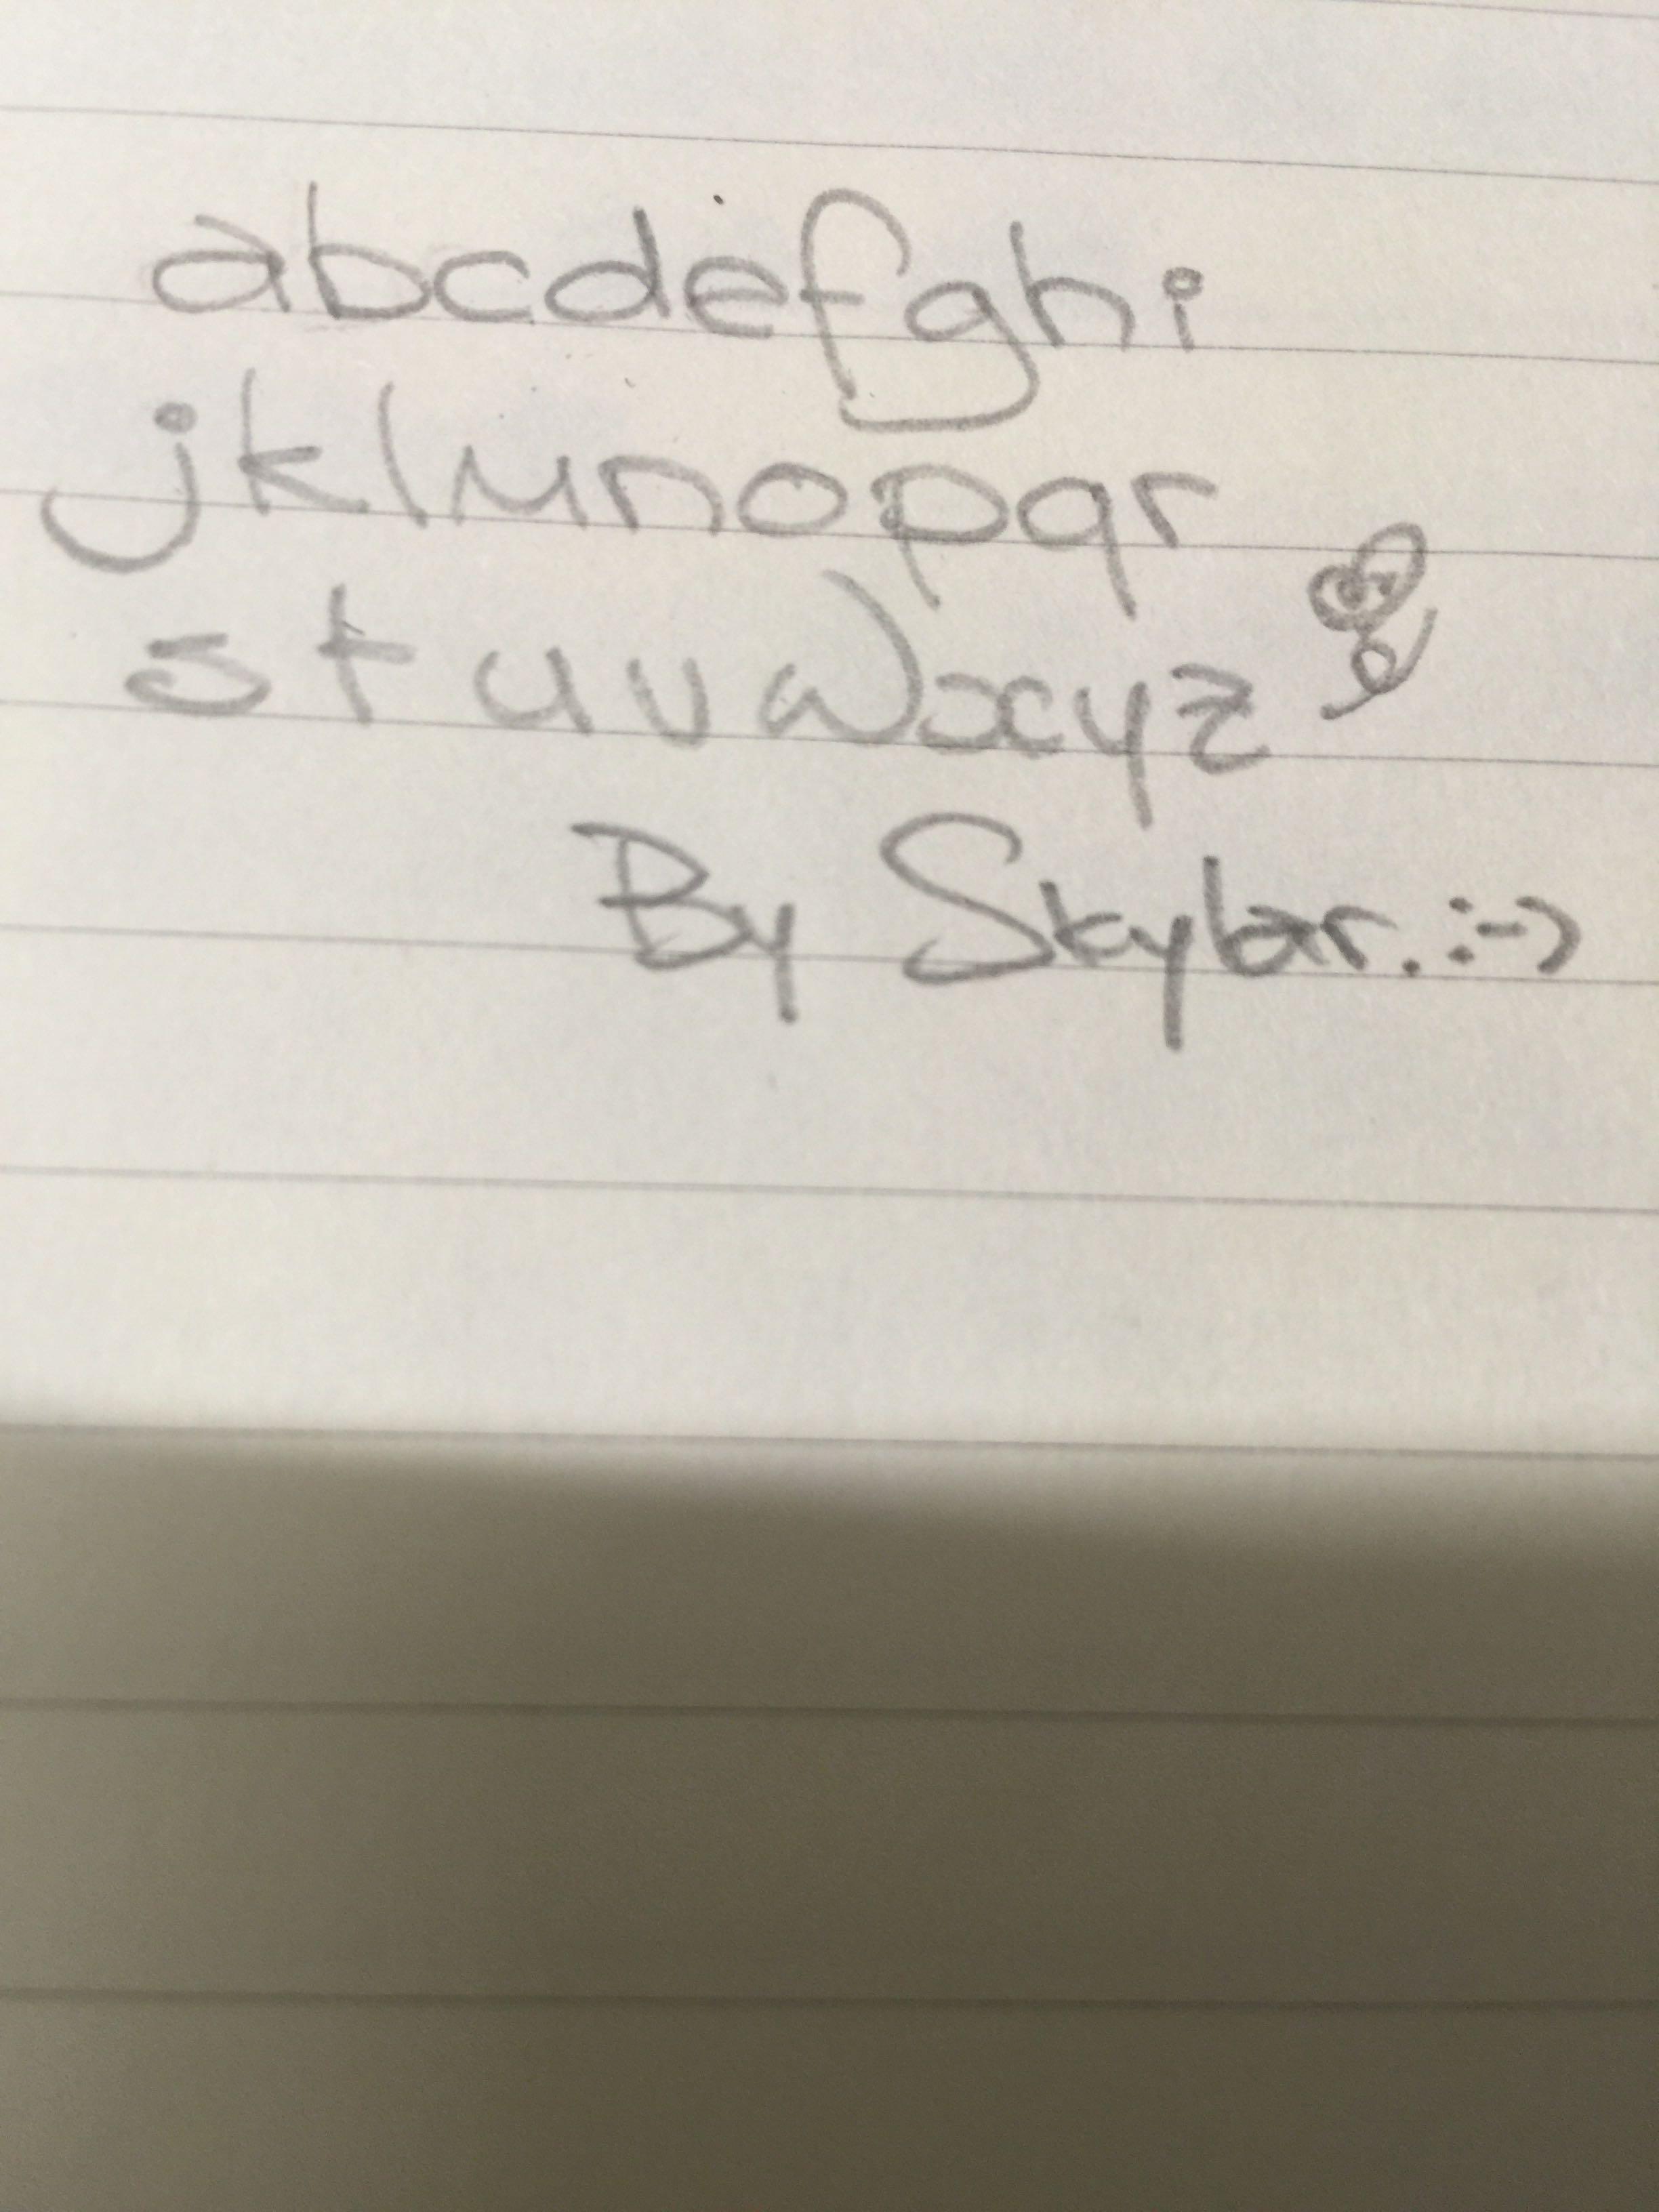 abcdefghi
jklmnopqr
stuvwxyz
By Skylar. :-)